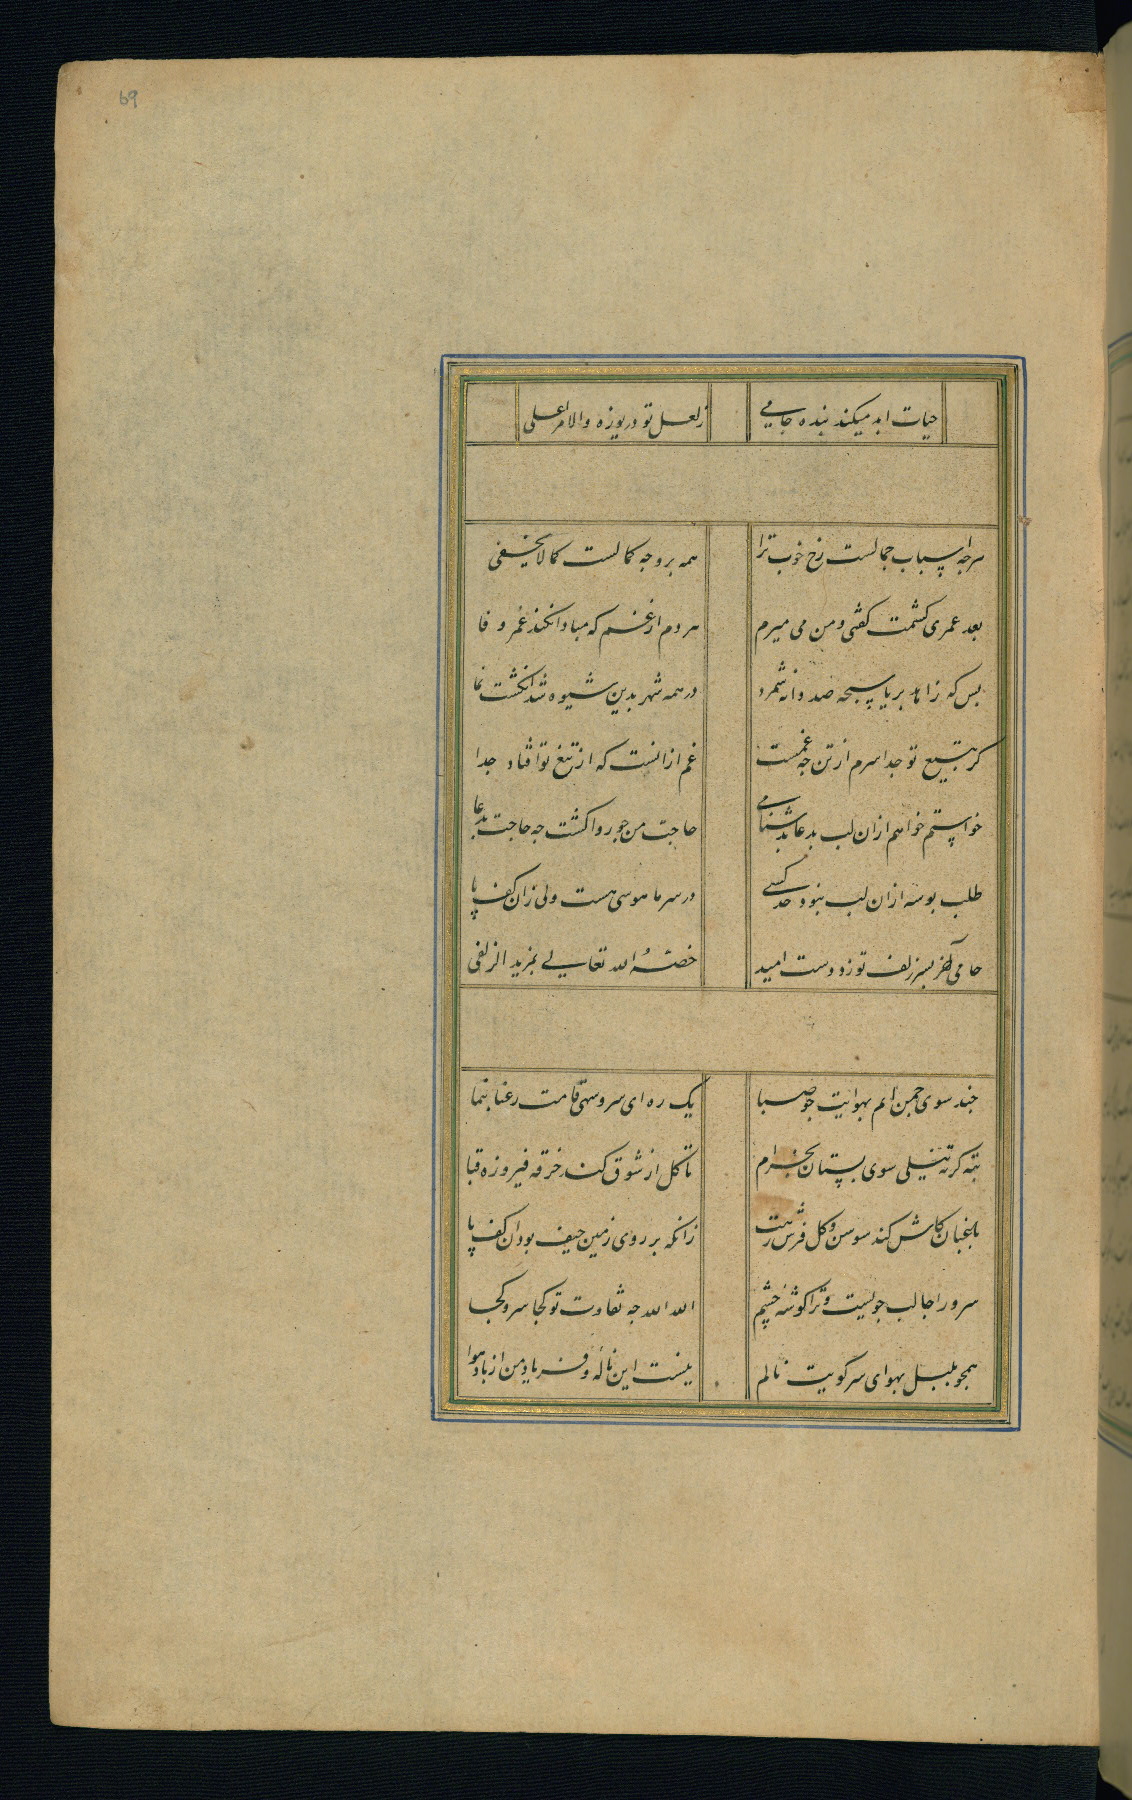 69
حیات ابد میکند بنده جامی ز لعل تو دریوزه والامر اعلی
هرچه اسباب جمالست رخ خوب ترا همه بر وجه کمالست کما لا یخفی
بعد عمری کشمت گفتی و من می میرم هر دم از غم که مبادا نکند عمر وفا
بس که زاهد بریا سبحه صد دانه شمرد در همه شهر بدین شیوه شد انکشت نما
کر بتیغ تو جدا سرم از تن چه غمست غم ازانست که از تیغ تو افتاد جدا
خواستم خواهم ازان لب بدعا دشنامی حاجت من چو روا کشت چه حاجت بدعا
طلب بوسه ازان لب نبود حد کسی در سر ما هوسی هست ولی زان کف پا
جامی آخر بسر زلف تو زد دست امید خصّهُ الله تعالی بمزید الزلفی
چند سوی چمن ایم بهوایت چو صبا یک ره ای سرو سهی قامت رعنا بنما
ته کرته نیلی سوی بستان بخرام تا کل از شوق کند خرقه فیروزه قبا
باغبان کاش کند سوسن و کل فرش رهت زانکه بر روی زمین حیف بود ان کف پا
سرو را جا لب جویست و ترا کوشه چشم الله الله چه تفاوت تو کجا سرو کجا
همچو بلبل بهوای سر کویت نالم نیست این ناله و فریاد من از باد هوا